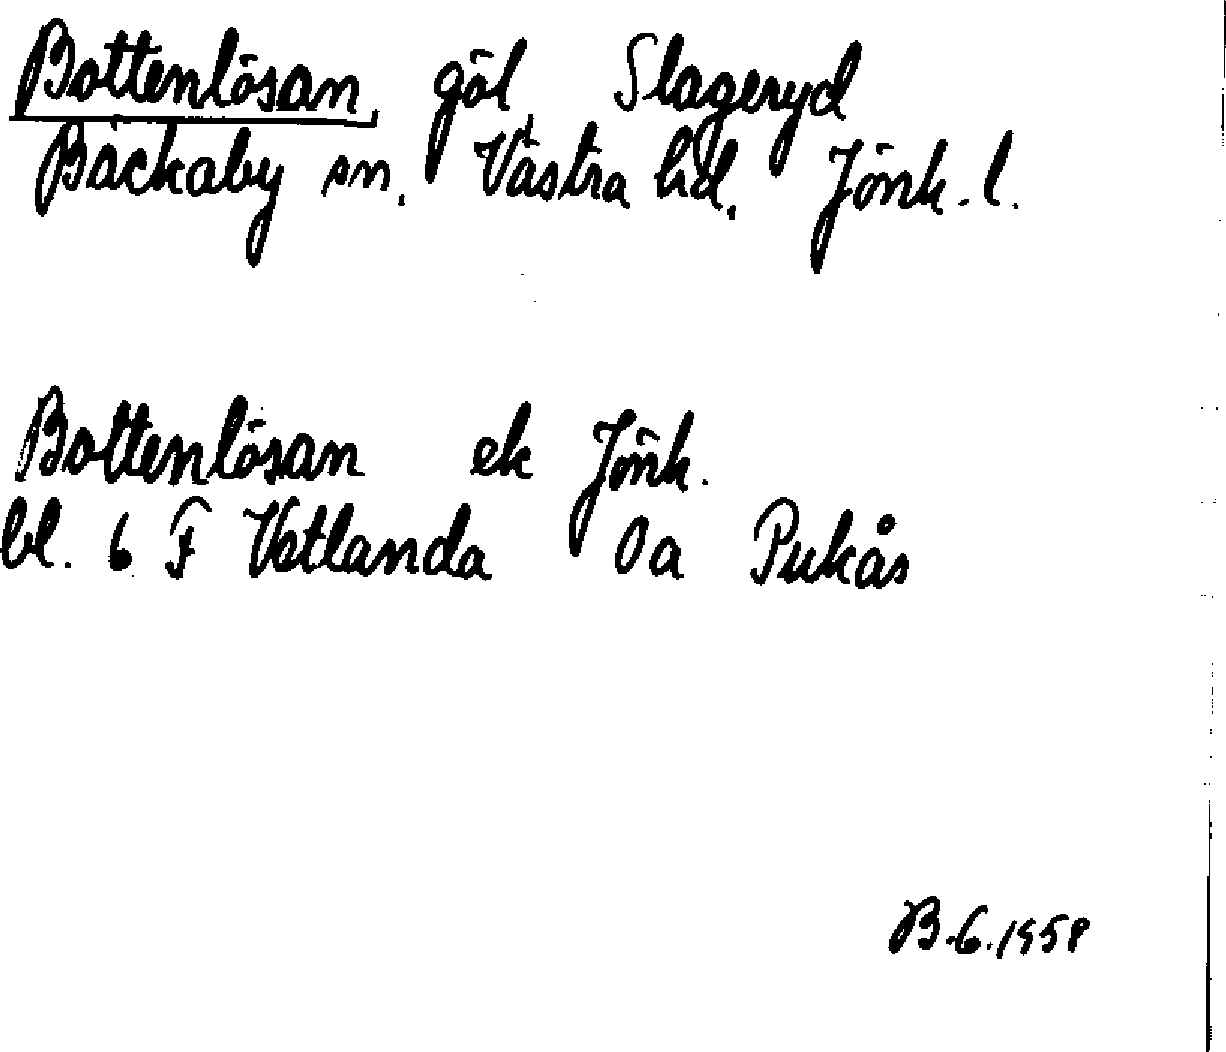 Bottenlösan, göl Slageryd
Bäckaby sn. Västra hd. Jönk. l.
Bottenlösan ek Jönk.
bl. 6 F Vetlanda 0a Pukås
B.-G. 1958